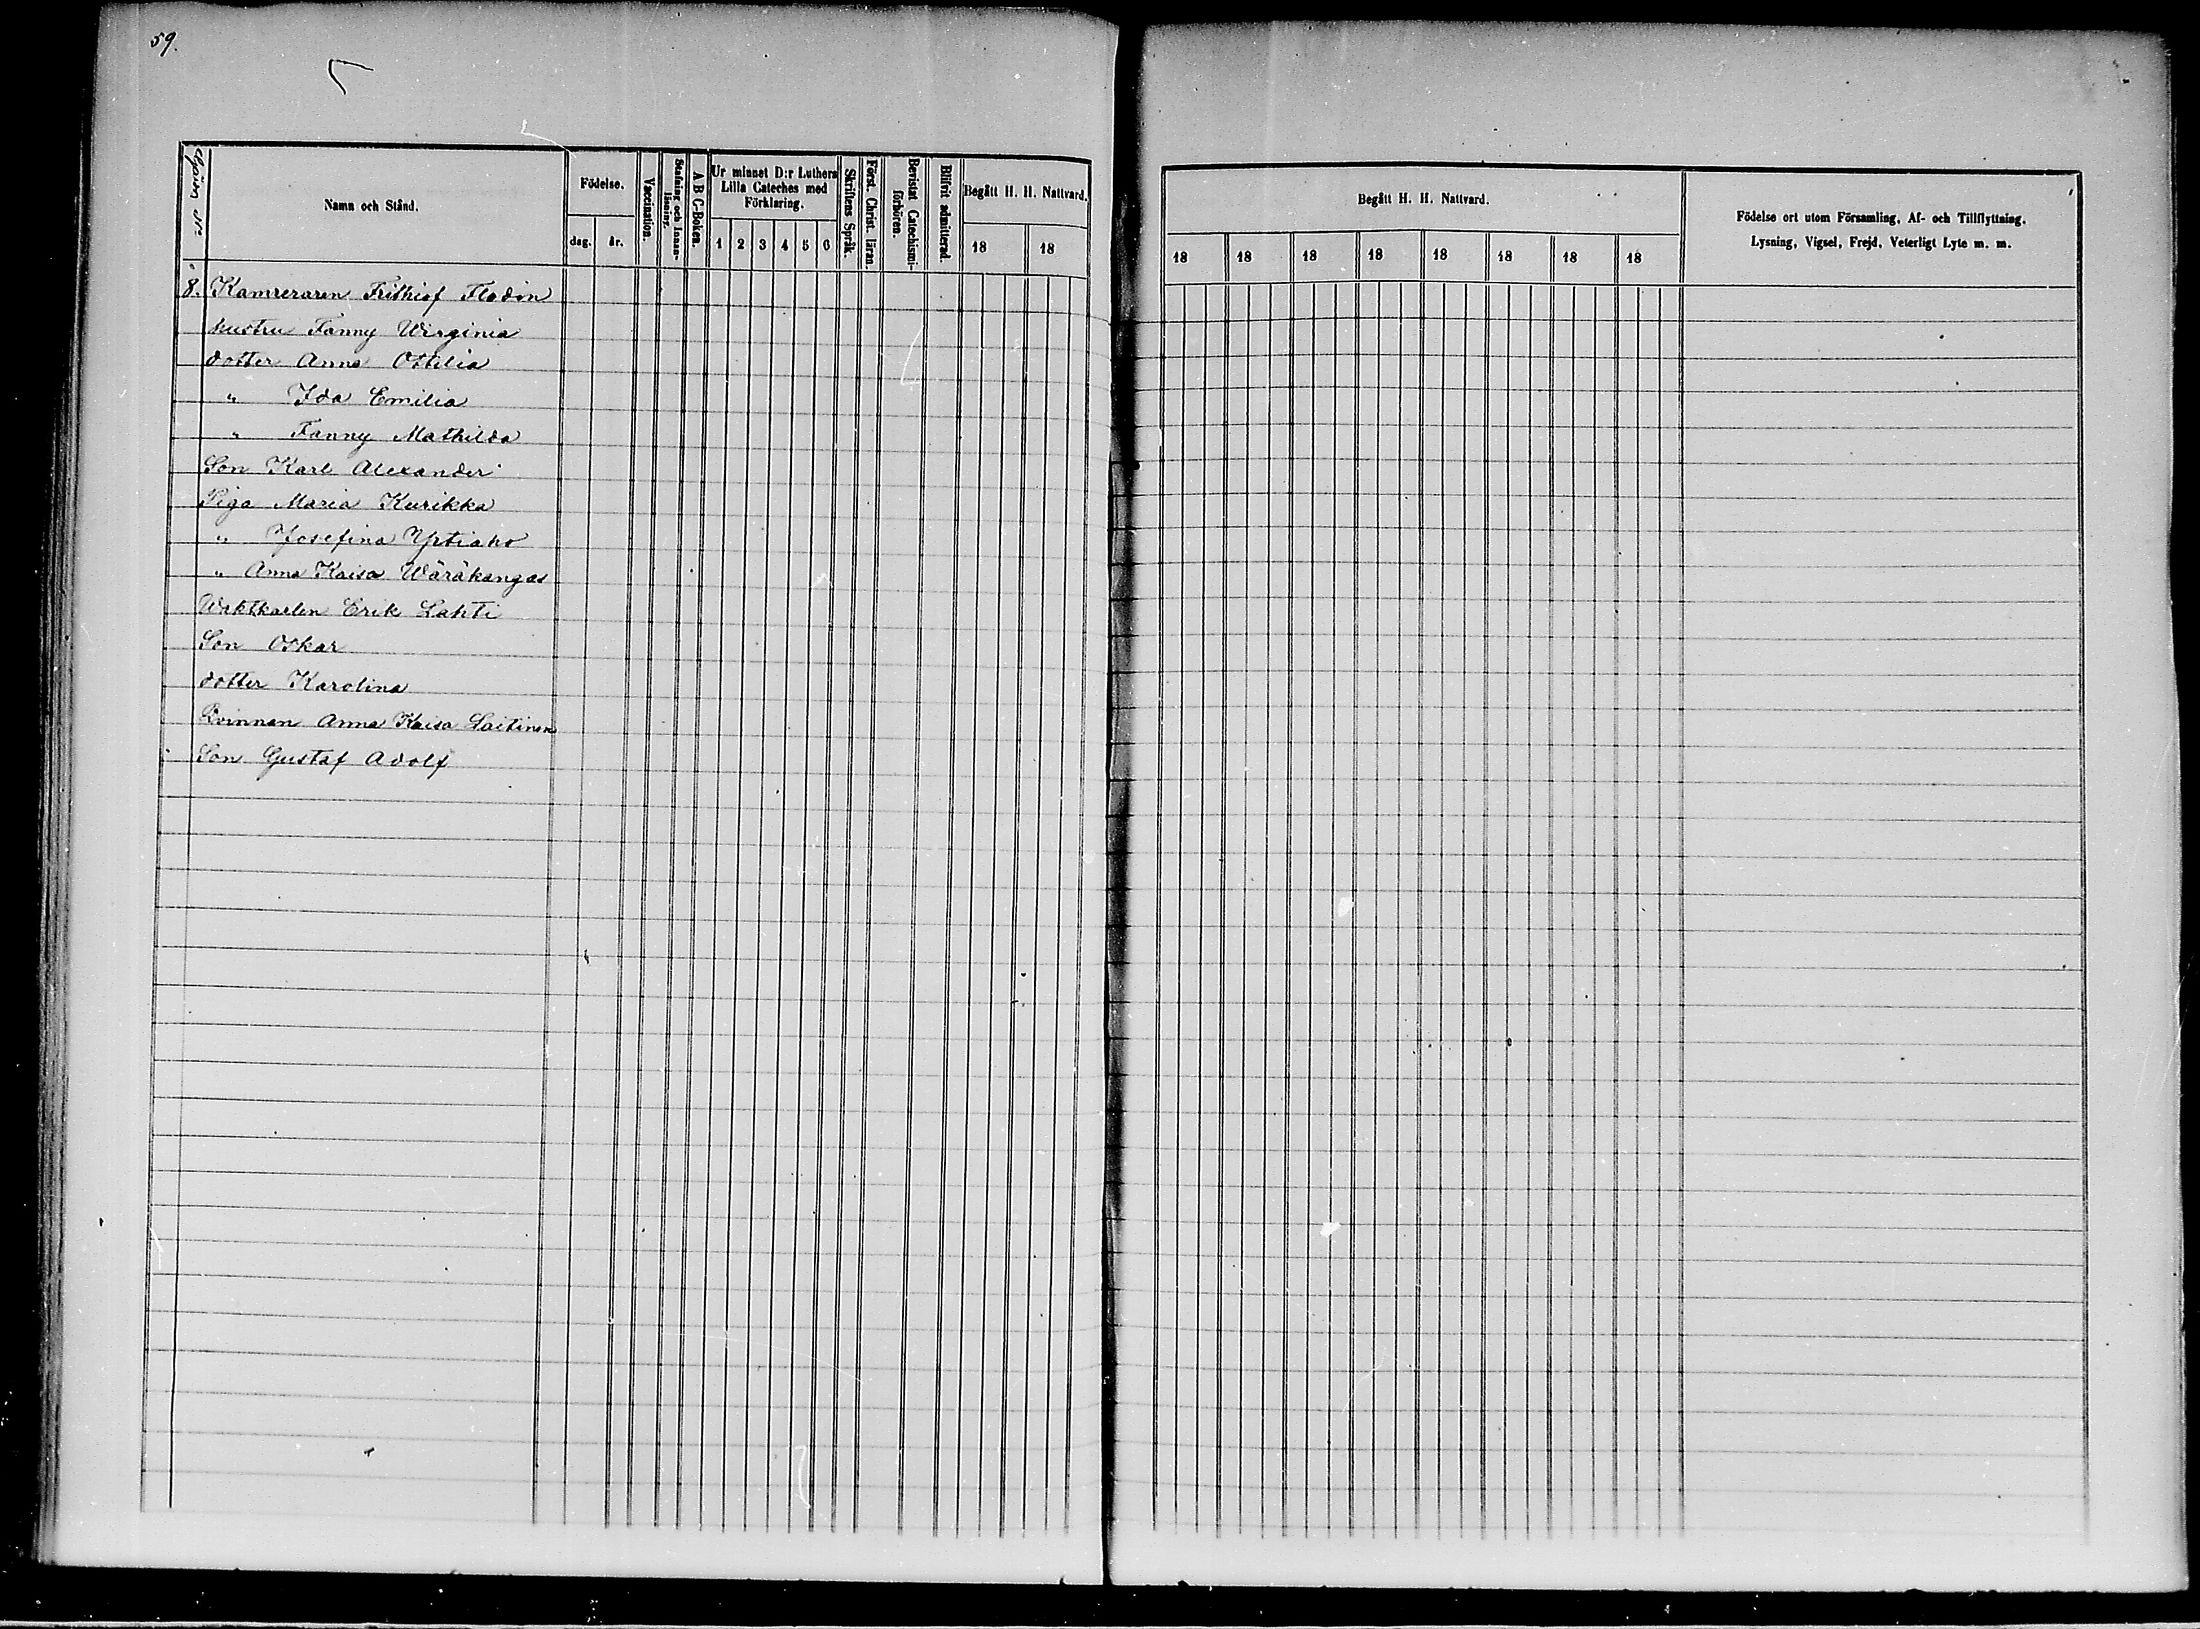 59.
Gården No
Namn och Stånd.
Födelse.
dag.
år.
Vaccination.
Stafning och Innan-
läsning.
A B C-Boken.
Ur minnet D:r Luthers
Lilla Cateches med
Förklaring.
1 2 3 4 5 6
Skriftens Språk.
Först. Christ. läran.
Bevistat Catechismi-
förhören.
Blifvit admitterad.
Begått H. H. Nattvard.
18 18
8. Kamreraren Frithiof Flodin
hustru Fanny Wirginia
dotter Anna Ottilia
" Ida Emilia
" Fanny Mathilda
Son Karl Alexander
Piga Maria Kurikka
" Josefina Yrtiaho
" Anna Kaisa Wäräkangas
Waktkarlen Erik Lahti
Son Oskar
dotter Karolina
Qvinnan Anna Kaisa Laitinen
Son Gustaf Adolf
Begått H. H. Nattvard.
18 18 18 18 18 18 18 18
Födelse ort utom Församling, Af- och Tillflyttning,
Lysning, Vigsel, Frejd, Veterligt Lyte m. m.